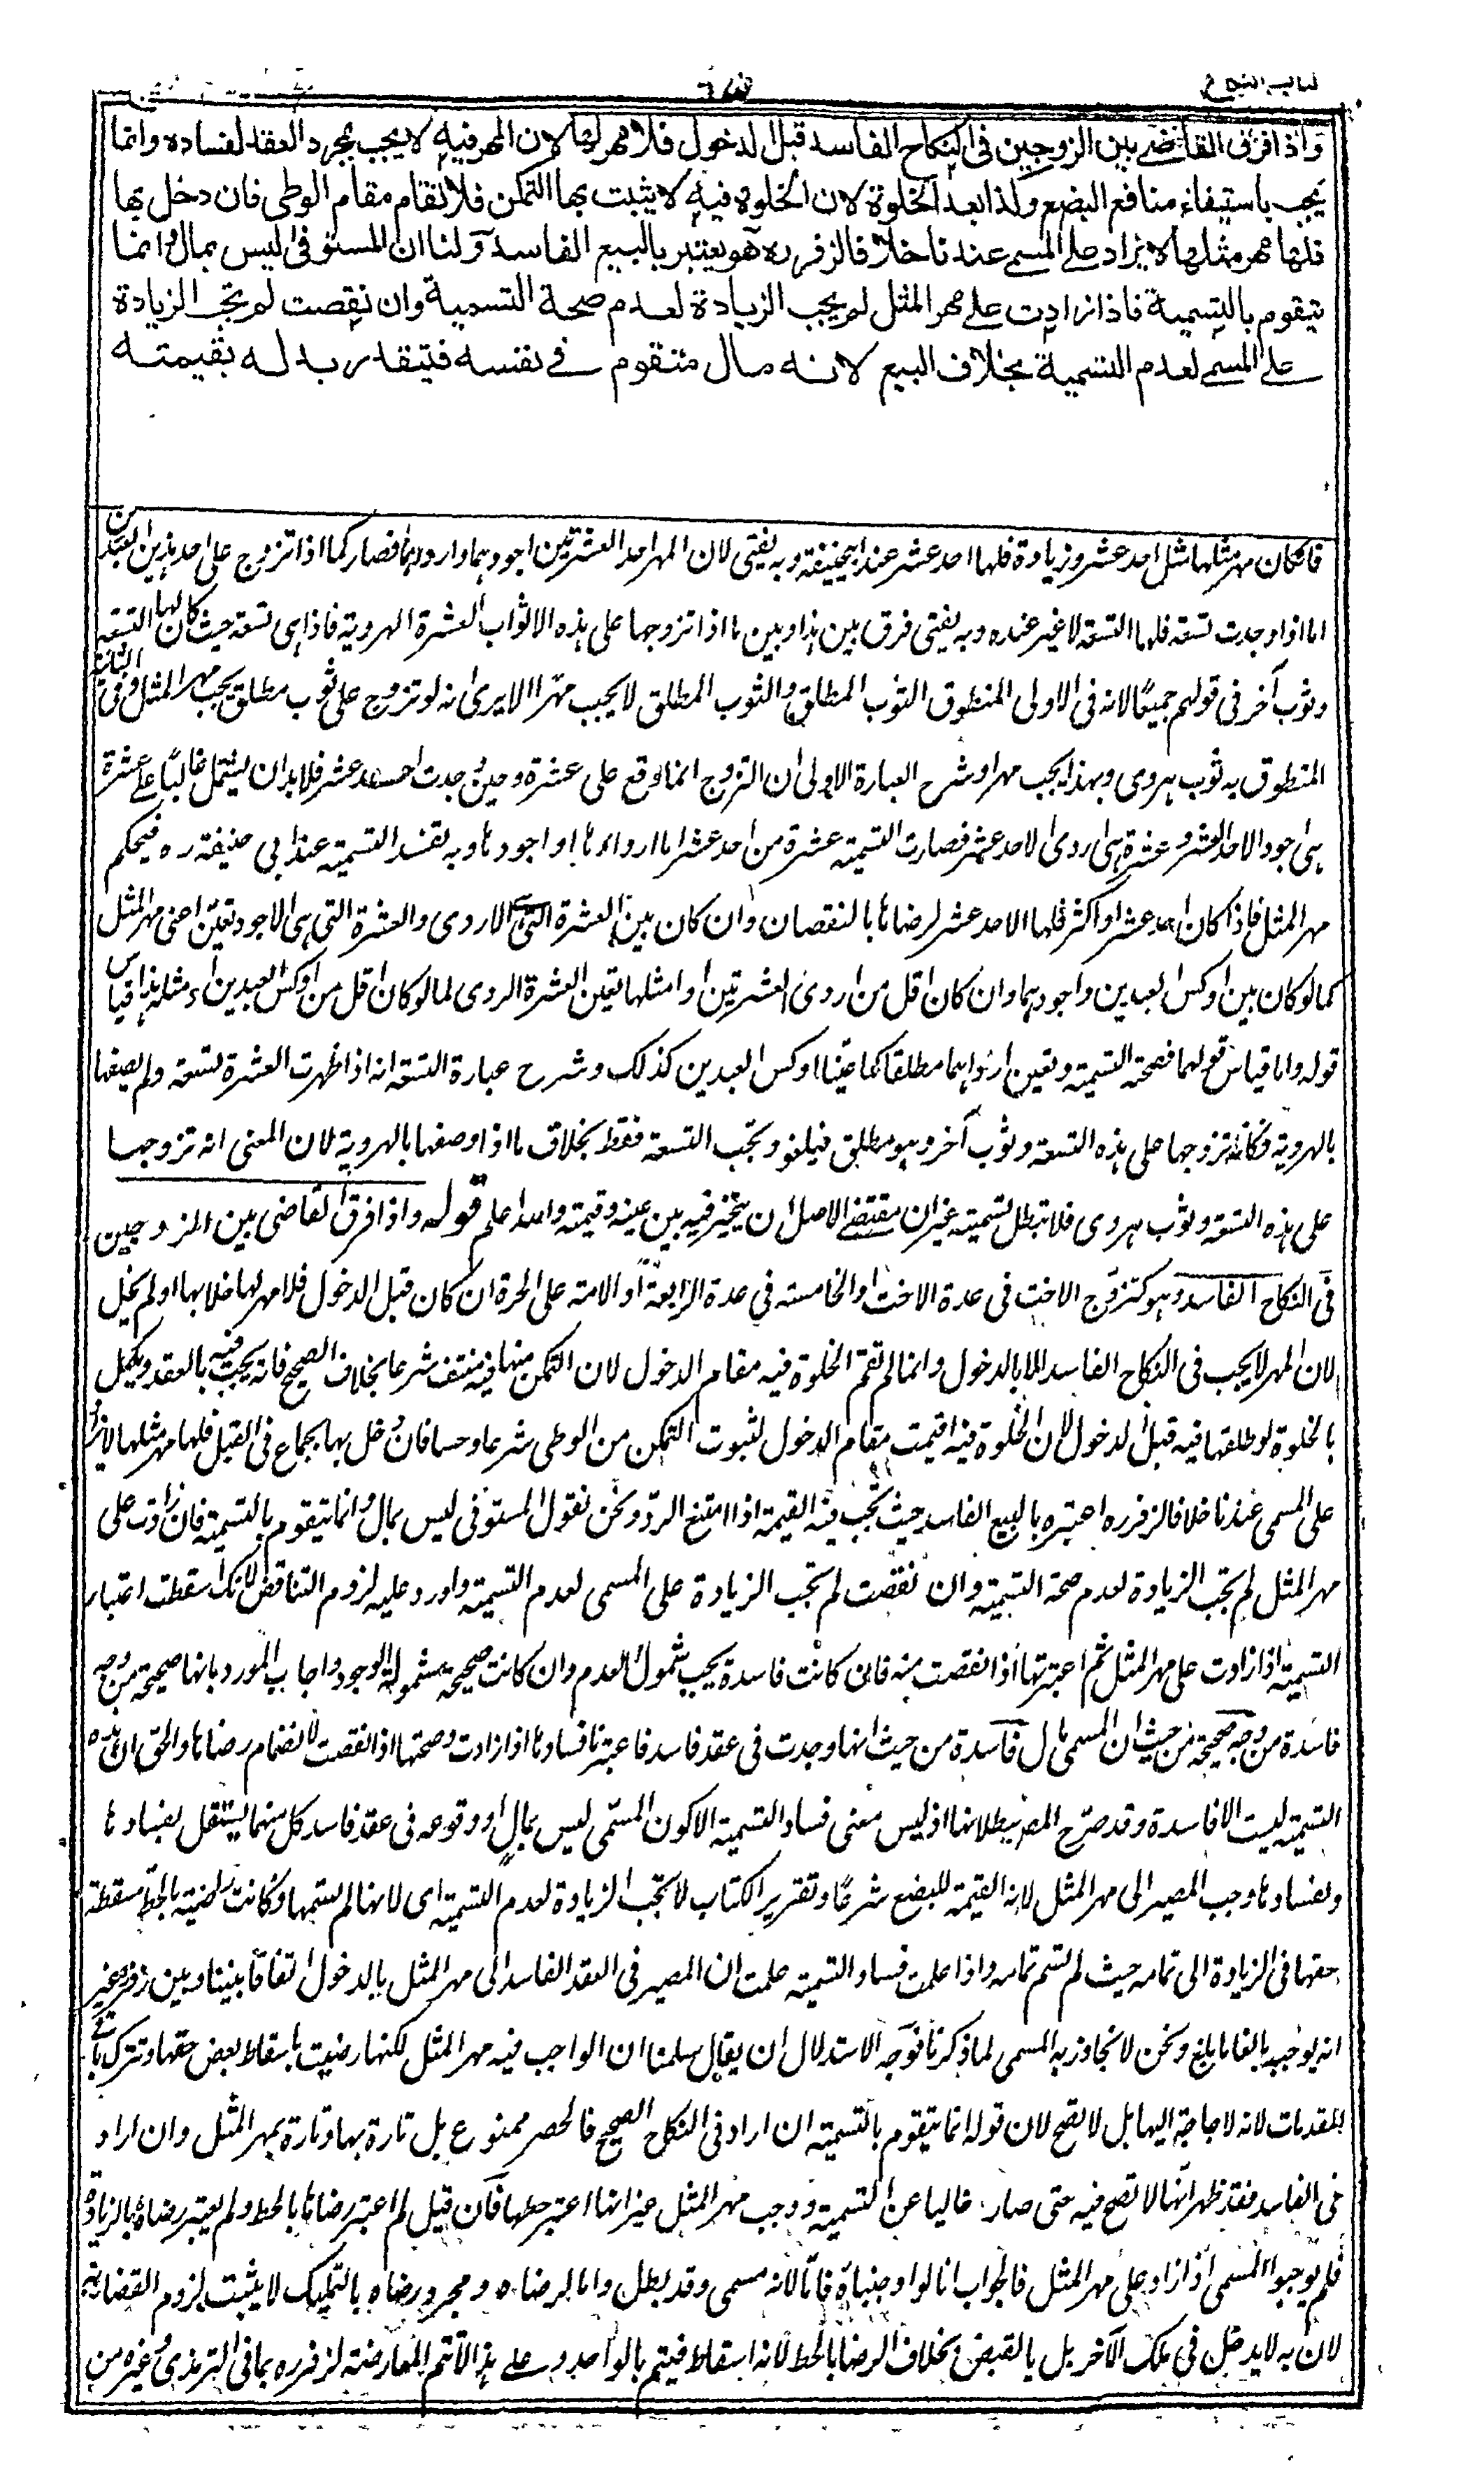 كتاب النكاح
واذا فرق القاضے بين الزوجين فى النكاح الفاسد قبل الدخول فلا مهر لها لان المهر فيه لا يجب بمجرد العقد لفساده وانما
يجب باستيفاء منافع البضع وكذا بعد الخلوة لان الخلوة فيه لا يثبت بها التمكن فلا تقام مقام الوطى فان دخل بها
فلها مهر مثلها لا يزاد علے المسمے عندنا خلافا لزفر ره هو يعتبر بالبيع الفاسد ولنا ان المستوفى ليس بمال وانما
يتقوم بالتسمية فاذا زادت علے مهر المثل لم يجب الزيادة لعدم صحة التسمية وان نقصت لم تجب الزيادة
علے المسمے لعدم التسمية بخلاف البيع لانه مال متقوم فے نفسه فيتقدر بدله بقيمته
فان كان مهر مثلها مثل احد عشر وزيادة فلها احد عشر عند ابيحنيفة وبه يفتى لان المهر احد العشرتين اجودهما واردؤهما فصار كما اذا تزوج على احد هذين العبدين
اما اذا وجدت تسعة فلها التسعة لا غير عنده وبه يفتى فرق بين هذا وبين ما اذا تزوجها على هذه الاثواب العشرة الهروية فاذا هى تسعة حيث كان لها التسعة
وثوب آخر فى قولهم جميعًا لانه فى الاولى المنطوق الثوب المطلق والثوب المطلق لا يجب مهرا الا يرى انه لو تزوج على ثوب مطلق يجب مهر المثل وفى الثانية
المنطوق به ثوب هروى وبهذا يجب مهرا وشرح العبارة الاولى ان التزوج انما وقع على عشرة وحين وجدت احد عشر فلا بد ان يشتمل غالبًا علے عشرة
هى اجود الاحد العشر وعشرة هى اردى الاحد عشر فصارت التسمية عشرة من احد عشر اما اردؤها او اجودها وبه تفسد التسمية عند ابى حنيفة ره فيحكم
مهر المثل فاذا كان احد عشر او اكثر فلها الاحد عشر لرضاها بالنقصان وان كان بين العشرة التى هى الاردى والعشرة التى هى الاجود تعين اعنى مهر المثل
كما لو كان بين اوكس العبدين واجودهما وان كان اقل من اردى العشرتين او مثلها تعين العشرة الردى كما لو كان اقل من اوكس العبدين او مثله هذا قياس
قوله واما قياس قولهما فصحة التسمية وتعين اردؤهما مطلقا كما عينا اوكس العبدين كذلك وشرح عبارة التسعة انه اذا ظهرت العشرة تسعة ولم يصفها
بالهروية فكانه تزوجها على هذه التسعة وثوب آخر وهو مطلق فيلغو وتجب التسعة فقط بخلاف ما اذا وصفها بالهروية لان المعنى انه تزوجها
على هذه التسعة وثوب هروى فلا تبطل تسميته غير ان مقتضے الاصل ان يتخير فيه بين عينه وقيمته والله اعلم قوله واذا فرق القاضى بين الزوجين
فى النكاح الفاسد وهو كتزوج الاخت فى عدة الاخت او الخامسة فى عدة الرابعة او الامة على الحرة ان كان قبل الدخول فلا مهر لها خلا بها او لم يخل
لان المهر لا يجب فى النكاح الفاسد الا بالدخول وانما لم تقم الخلوة فيه مقام الدخول لان التمكن منها فيه منتف شرعا بخلاف الصحيح فانه يجب فيه بالعقد ويكمل
بالخلوة لو طلقها فيه قبل الدخول لان الخلوة فيه اقيمت مقام الدخول لثبوت التمكن من الوطى شرعا وحسا فان دخل بها بجماع فى القبل فلها مهر مثلها لا يزاد
على المسمى عندنا خلافا لزفر ره اعتبره بالبيع الفاسد حيث تجب فيه القيمة اذا امتنع الرد ونحن نقول المستوفى ليس بمال وانما يتقوم بالتسمية فان زادت على
مهر المثل لم تجب الزيادة لعدم صحة التسمية وان نقصت لم تجب الزيادة على المسمى لعدم التسمية واورد عليه لزوم التناقض لانك اسقطت اعتبار
التسمية اذا زادت على مهر المثل ثم اعتبرتها اذا نقصت منه فان كانت فاسدة يجب شمول العدم وان كانت صحيحة شمول الوجود واجاب المورد بانها صحيحة من وجه
فاسدة من وجه صحيحة من حيث ان المسمى مال فاسدة من حيث انها وجدت فى عقد فاسد فاعتبرنا فسادها اذا زادت وصحتها اذا نقصت لانضمام رضاها والحق ان هذه
التسمية ليست الا فاسدة وقد صرح المصـ ببطلانها اذ ليس معنى فساد التسمية الا كون المسمى ليس بمال او وقوعه فى عقد فاسد كل منهما يستقل بفسادها
ولفسادها وجب المصير الى مهر المثل لانه القيمة للبضع شرعًا وتقرير الكتاب لا تجب الزيادة لعدم التسمية اى لانها لم تسمها وكانت راضية بالحط مسقطة
حقها فى الزيادة الى تمامه حيث لم تسم تمامه واذا علمت فساد التسمية علمت ان المصير فى العقد الفاسد الى مهر المثل بالدخول اتفاقا بيننا وبين زفر وغير
انه يوجبه بالغا ما بلغ ونحن لا نجاوز به المسمى لما ذكرنا فوجه الاستدلال ان يقال سلمنا ان الواجب فيه مهر المثل لكنها رضيت باسقاط بعض حقها وتترك باقى
المقدمات لانه لا حاجة اليها بل لا تصح لان قوله انما يتقوم بالتسمية ان اراد فى النكاح الصحيح فالحصر ممنوع بل تارة بها وتارة بمهر المثل وان اراد
فى الفاسد فقد ظهر انها لا تصح فيه حتى صار خاليا عن التسمية ووجب مهر المثل غير انها اعتبر حطها فان قيل لم اعتبر رضاها بالحط ولم يعتبر رضاه بالزيادة
فلم يوجبوا المسمى اذا زاد على مهر المثل فالجواب انا لو اوجبناه فاما لانه مسمى وقد بطل واما لرضاه ومجرد رضاه بالتمليك لا يثبت لزوم القضاء به
لان به لا يدخل فى ملك الآخر بل بالقبض بخلاف الرضا بالحط لانه اسقاط فيتم بالواحد وعلے هذا لا تتم المعارضة لزفر ره بما فى الترمذى وغيره من